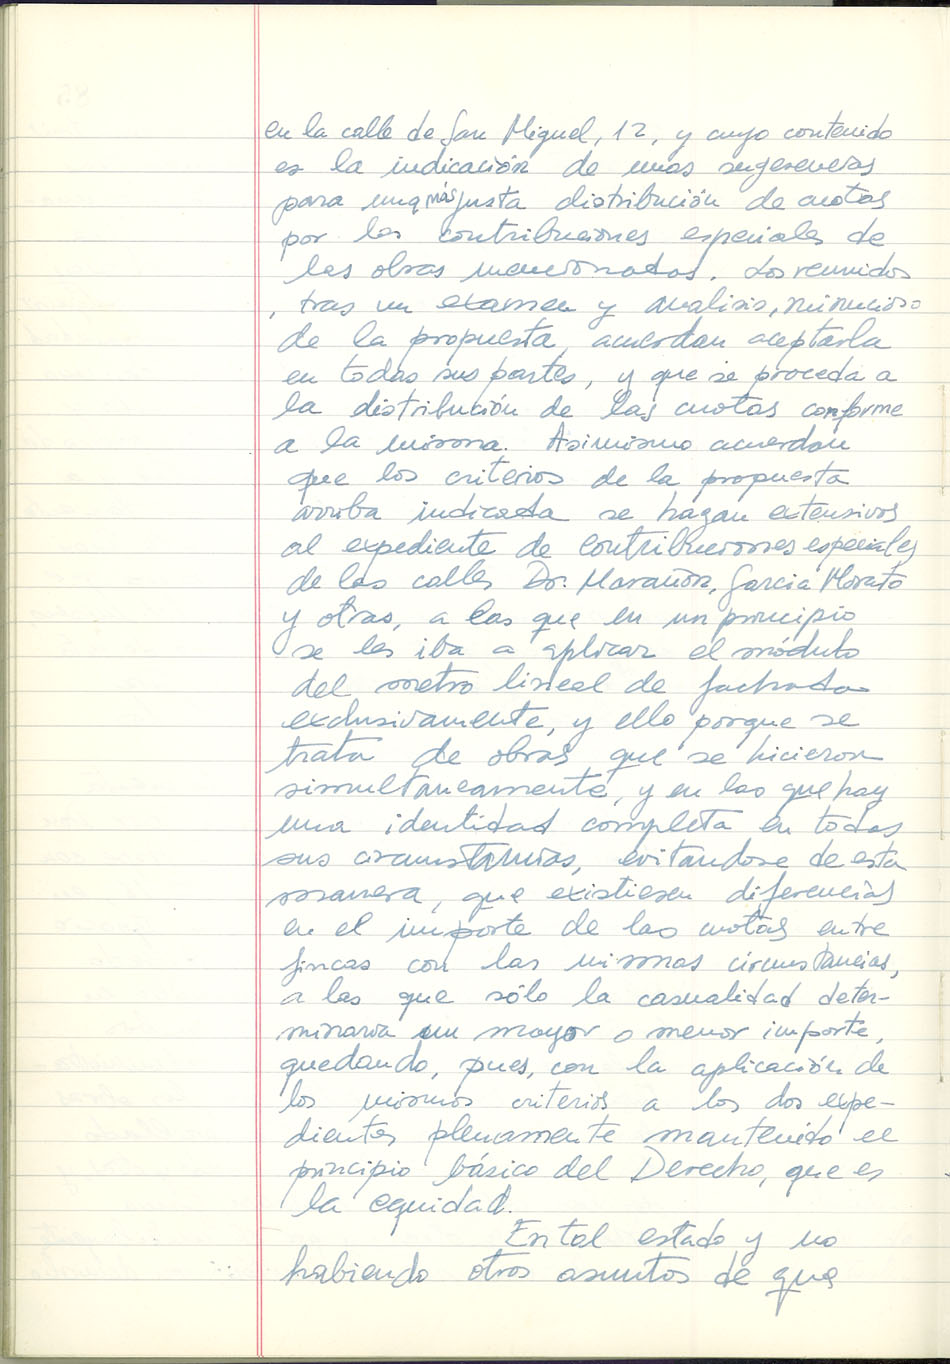 en la calle de San Miguel, 12, y cuyo contenido
es la indicación de unas sugerencias
para una más justa distribución de cuotas
por las contribuciones especiales de
las obras mencionadas. Los reunidos
, tras un examen y analisis, minucioso
de la propuesta, acuerdan aceptarla
en todas sus partes, y que se proceda a
la distribución de las cuotas conforme
a la misma. Asimismo acuerdan
que los criterios de la propuesta
arriba indicada se hagan extensivos
al expediente de contribuciones especiales
de las calles Dr. Marañón, Garcia Morato
y otras, a las que en un principio
se les iba a aplicar el módulo
del metro lineal de fachada
exclusivamente, y ello porque se
trata de obras que se hicieron
simultaneamente, y en las que hay
una identidad completa en todas
sus circunstancias, evitandose de esta
manera, que existiesen diferencias
en el importe de las cuotas entre
fincas con las mismas circunstancias,
a las que sólo la casualidad deter-
minaria un mayor o menor importe,
quedando, pues, con la aplicación de
los mismos criterios a los dos expe-
dientes plenamente mantenido el
principio básico del Derecho, que es
la equidad.
En tal estado y no
habiendo otros asuntos de que